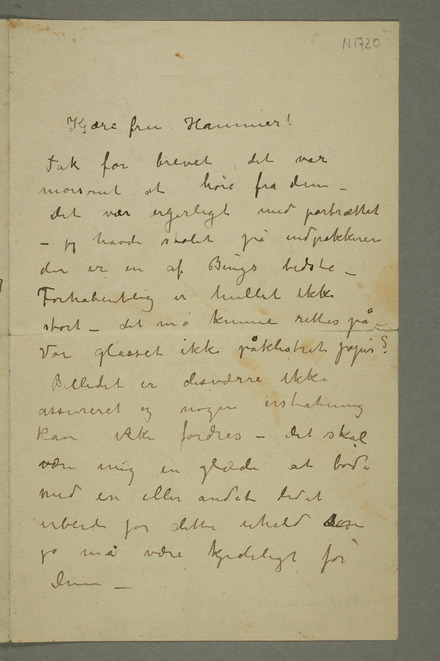 N 1720
Kjære fru Hammer!
Tak for brevet, det var
morsomt at höre fra dem –
Det var ærgerligt med portrættet
– jeg havde stolet på indpakkeren
der er en af Bings bedste –
Forhåbentlig er hullet ikke
stort – det må kunne rettes på –
Var glasset ikke påklistret papir?
Billedet er desværre ikke
assureret og nogen erstatning
kan ikke fordres – Det skal
være mig en glæde at bøde
med en eller andet lidet
arbeide for dette uheld som
jo må være kjedeligt for
Dem –